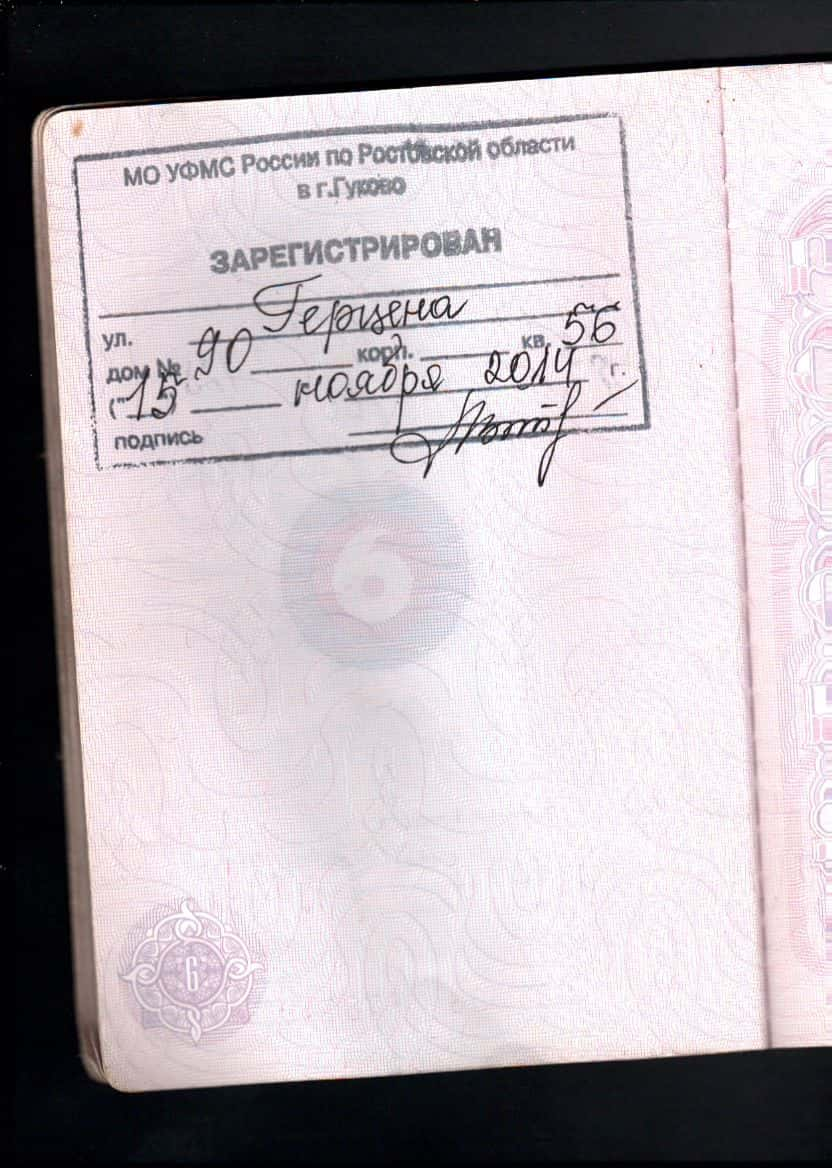 МО УФМС России по Ростовской области
в г.Гуково
ЗАРЕГИСТРИРОВАН
ул. Герцена
дом № 90 корп. кв. 56
("15 ноября 2014 г.
подпись
6
6